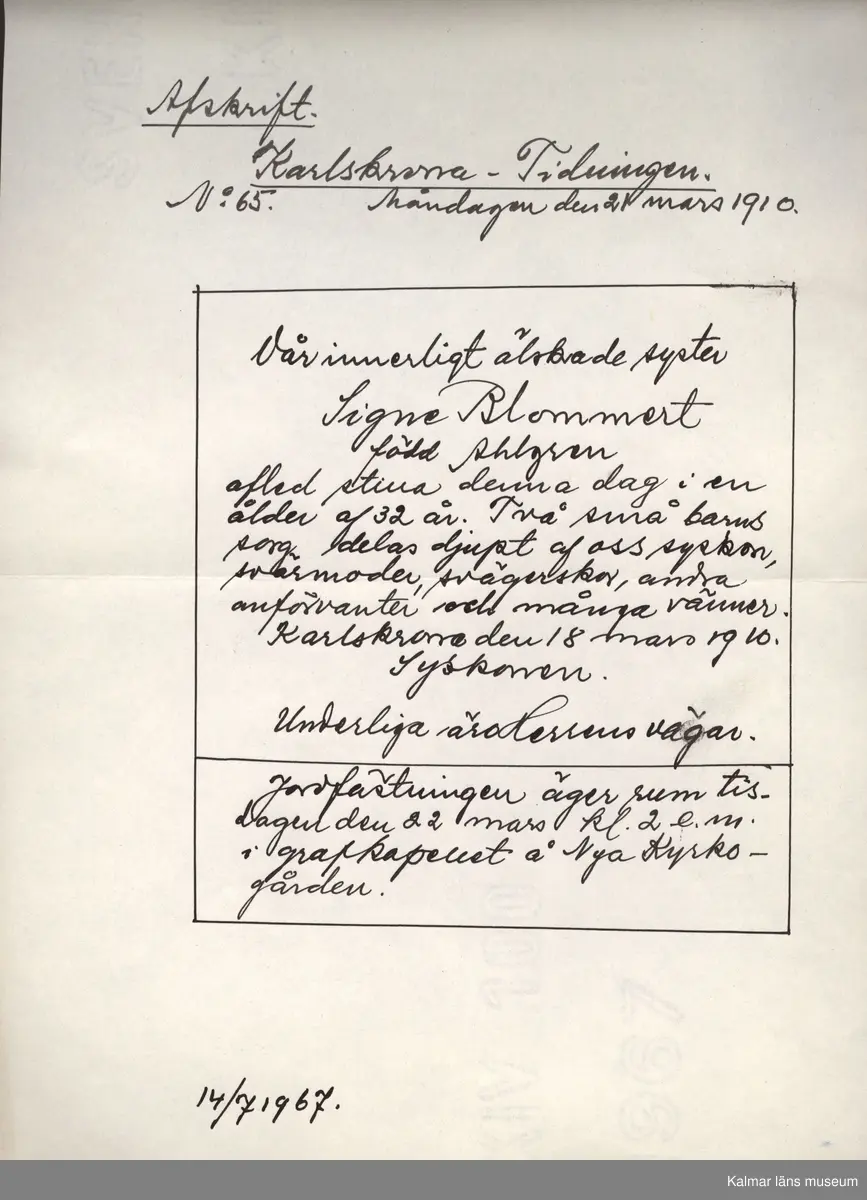 Afskrift.
Karlskrona - Tidningen.
No: 65. Måndagen den 21 mars 1910.
Vår innerligt älskade syster
Signe Blommert
född Ahlgren
afled stilla denna dag i en
ålder af 32 år. Två små barns
sorg delas djupt af oss syskon,
svärmoder, svägerskor, andra
anförvanter och många vänner.
Karlskrona den 18 mars 1910.
Syskonen.
Underliga äro Herrens vägar.
Jordfästningen äger rum tis-
dagen den 22 mars kl. 2 e.m.
i grafkapellet å Nya Kyrko-
gården.
14/7 1967.
Kalmar läns museum